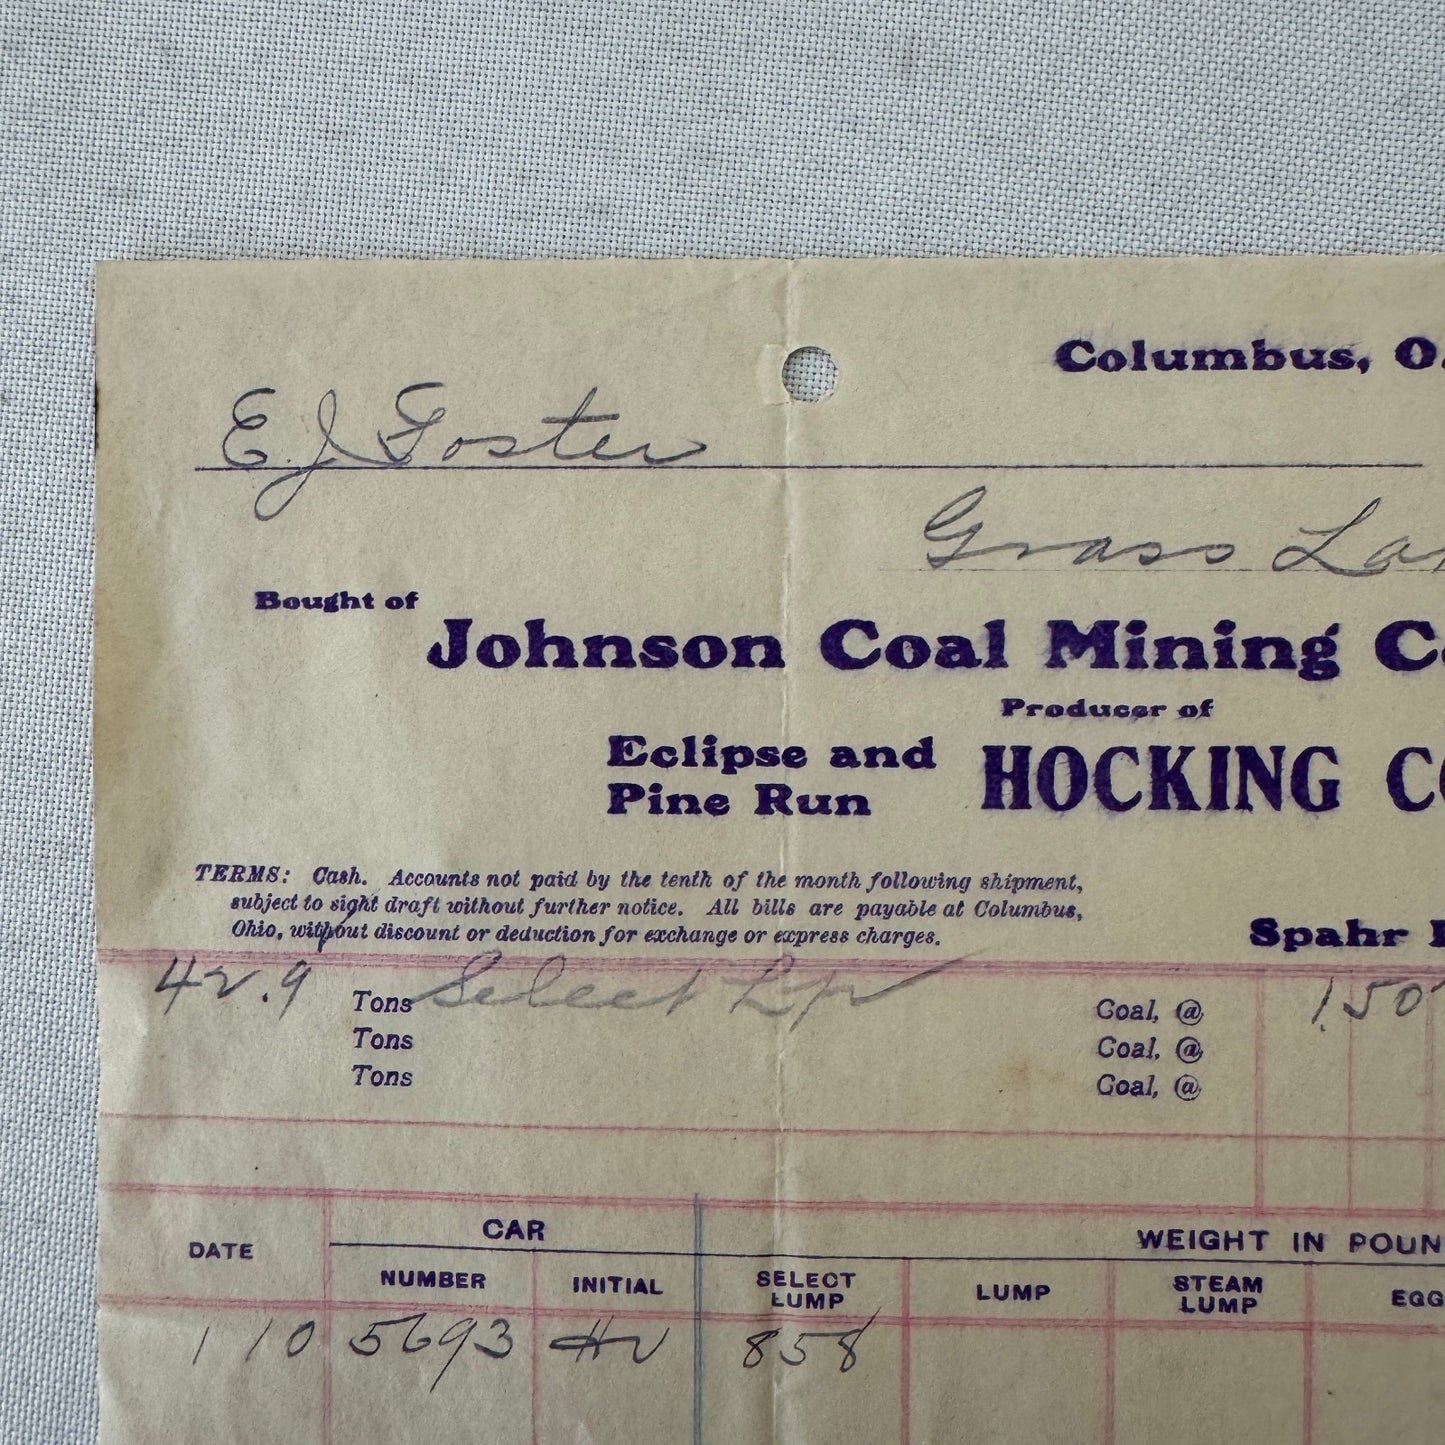 Columbus, O.
E. J. Foster
Grass La
Bought of
Johnson Coal Mining C
Producer of
Eclipse and
Pine Run
HOCKING CO
TERMS: Cash. Accounts not paid by the tenth of the month following shipment,
subject to sight draft without further notice. All bills are payable at Columbus,
Ohio, without discount or deduction for exchange or express charges.
Spahr
42.9 Tons Select Lp Coal, @ 1.50
Tons Coal, @
Tons Coal, @
DATE CAR WEIGHT IN POUN
NUMBER INITIAL SELECT LUMP LUMP STEAM LUMP EGG
1 10 5693 HV 858